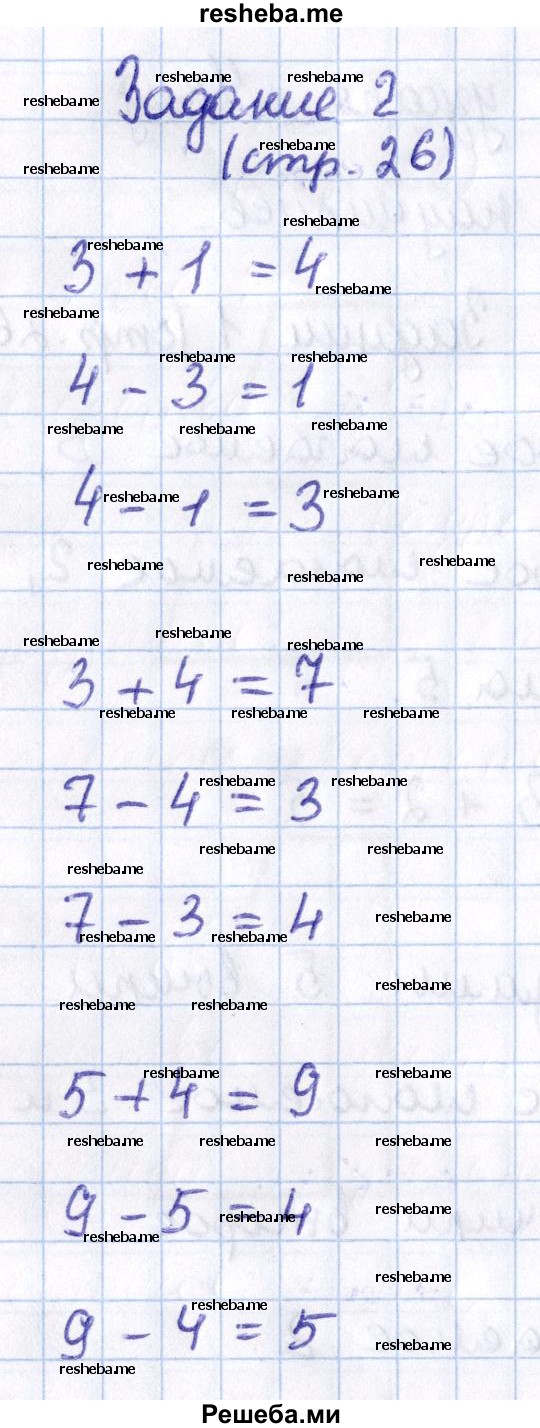 resheba.me
Задание 2
(стр. 26)
3 + 1 = 4
4 - 3 = 1
4 - 1 = 3
3 + 4 = 7
7 - 4 = 3
7 - 3 = 4
5 + 4 = 9
9 - 5 = 4
9 - 4 = 5
Решеба.ми